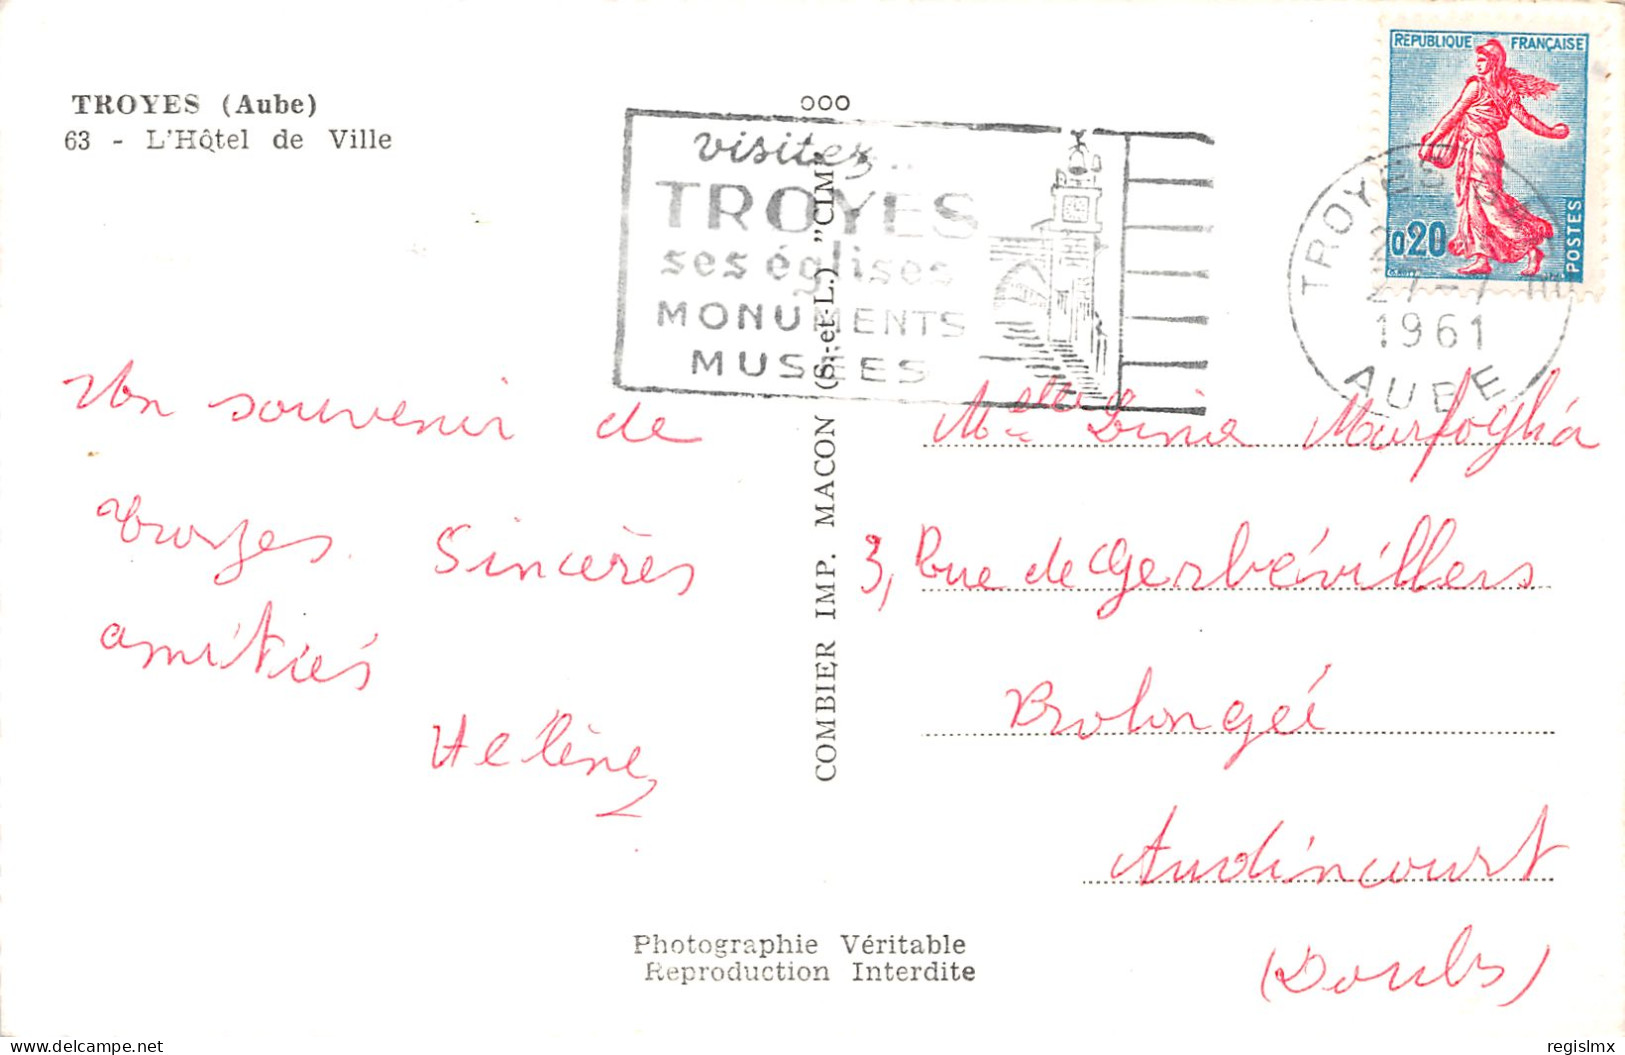 TROYES (Aube)
63 - L'Hôtel de Ville
visitez..
TROYES
ses églises
MONUMENTS
MUSÉES
REPUBLIQUE FRANÇAISE
0,20
POSTES
TROYES
27-7
1961
AUBE
Un souvenir de
Troyes. Sincères
amitiés
Hélène
COMBIER IMP. MACON (S.-et-L.) "CIM"
Melle
3, Rue de Gerbévillers
Prolongée
Audincourt
(Doubs)
Photographie Véritable
Reproduction Interdite
delcampe.net
regislmx